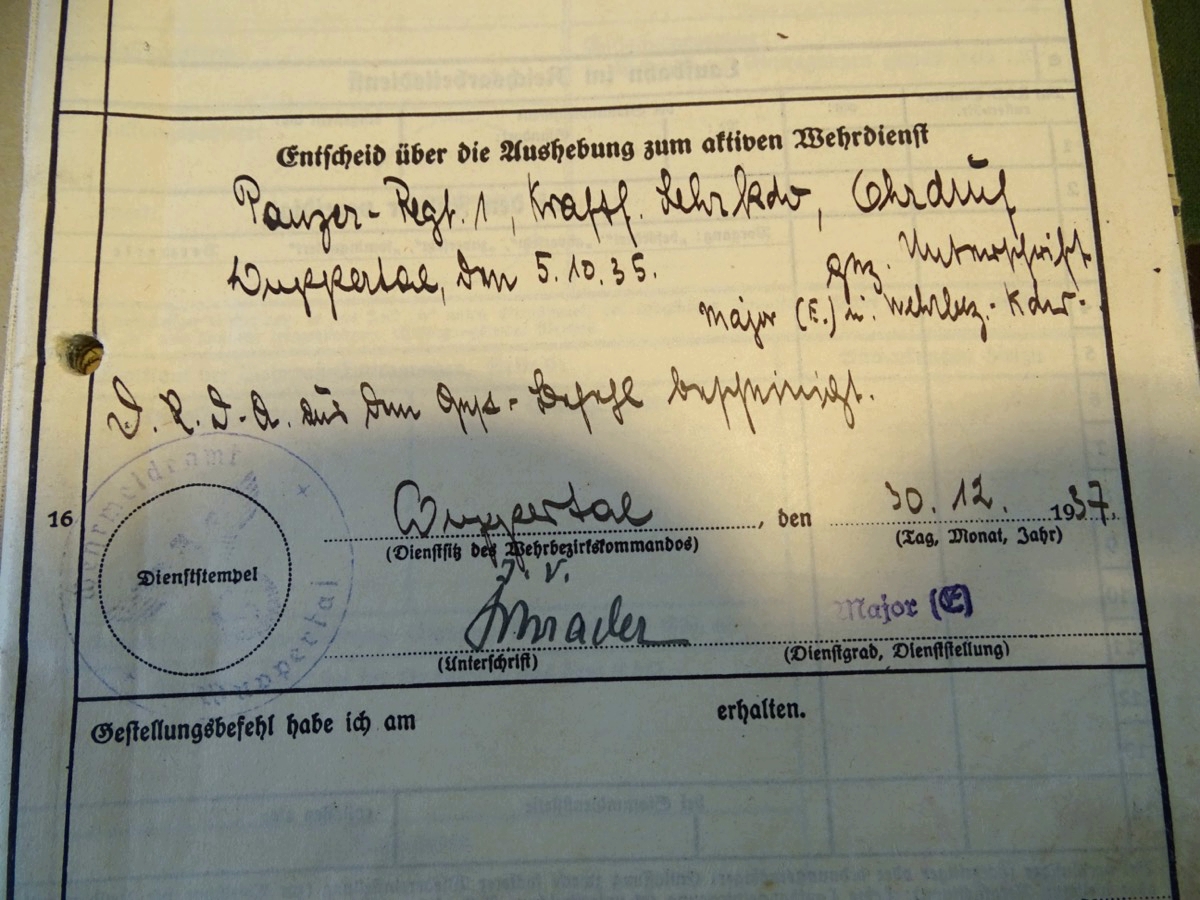 Entscheid über die Aushebung zum aktiven Wehrdienst
Panzer-Regt. 1, Kraftf. Lehrkdo, Ohrdruf
Wuppertal, den 5.10.35.
gez. Unterschrift.
Major (E.) u. Wehrbez.-Kdr.
D. R. d. A. aus dem Gest.-Befehl bescheinigt.
16
Wuppertal, den 30. 12. 1937.
(Dienstsitz des Wehrbezirkskommandos)
(Tag, Monat, Jahr)
Wehrmeldeamt
Wuppertal
Dienststempel
J. V.
Schrader
Major (E)
(Unterschrift)
(Dienstgrad, Dienststellung)
Gestellungsbefehl habe ich am erhalten.